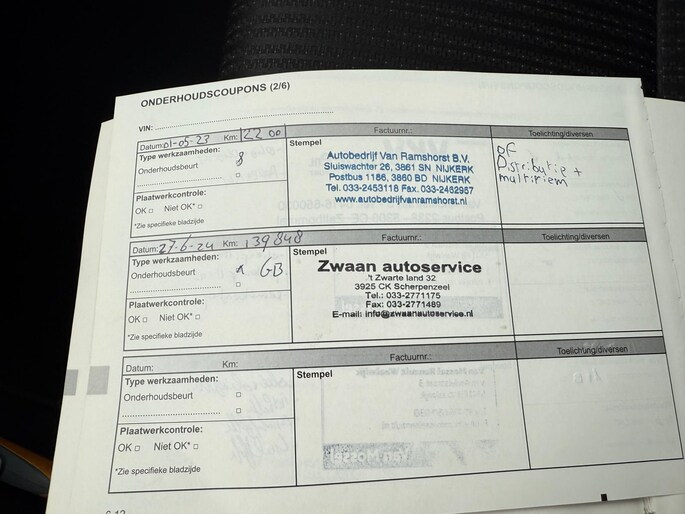 ONDERHOUDSCOUPONS (2/6)
VIN:
Datum: 01-05-23 Km: 12200 Factuurnr.: Toelichting/diversen
Type werkzaamheden: Stempel
Onderhoudsbeurt
Autobedrijf Van Ramshorst B.V.
Sluiswachter 26, 3861 SN NIJKERK
Postbus 1186, 3860 BD NIJKERK
Tel. 033-2453118 Fax. 033-2462957
www.autobedrijfvanramshorst.nl
Distributie +
multiriem
Plaatwerkcontrole:
OK Niet OK*
*Zie specifieke bladzijde
Datum: 27-6-24 Km: 139848 Factuurnr.: Toelichting/diversen
Type werkzaamheden: Stempel
Onderhoudsbeurt x GB
Zwaan autoservice
't Zwarte land 32
3925 CK Scherpenzeel
Tel.: 033-2771175
Fax: 033-2771489
E-mail: info@zwaanautoservice.nl
Plaatwerkcontrole:
OK Niet OK*
*Zie specifieke bladzijde
Datum: Km: Factuurnr.: Toelichting/diversen
Type werkzaamheden: Stempel
Onderhoudsbeurt
Plaatwerkcontrole:
OK Niet OK*
*Zie specifieke bladzijde